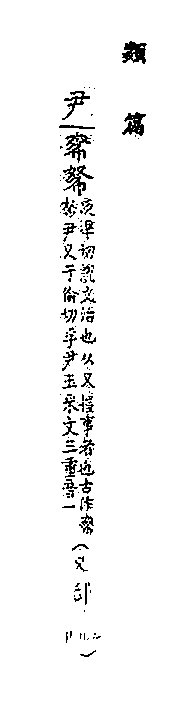 類篇
尹 庾準切說文治也从又握事者也古作
尹又于倫切孚尹玉采文三重音一
(又部